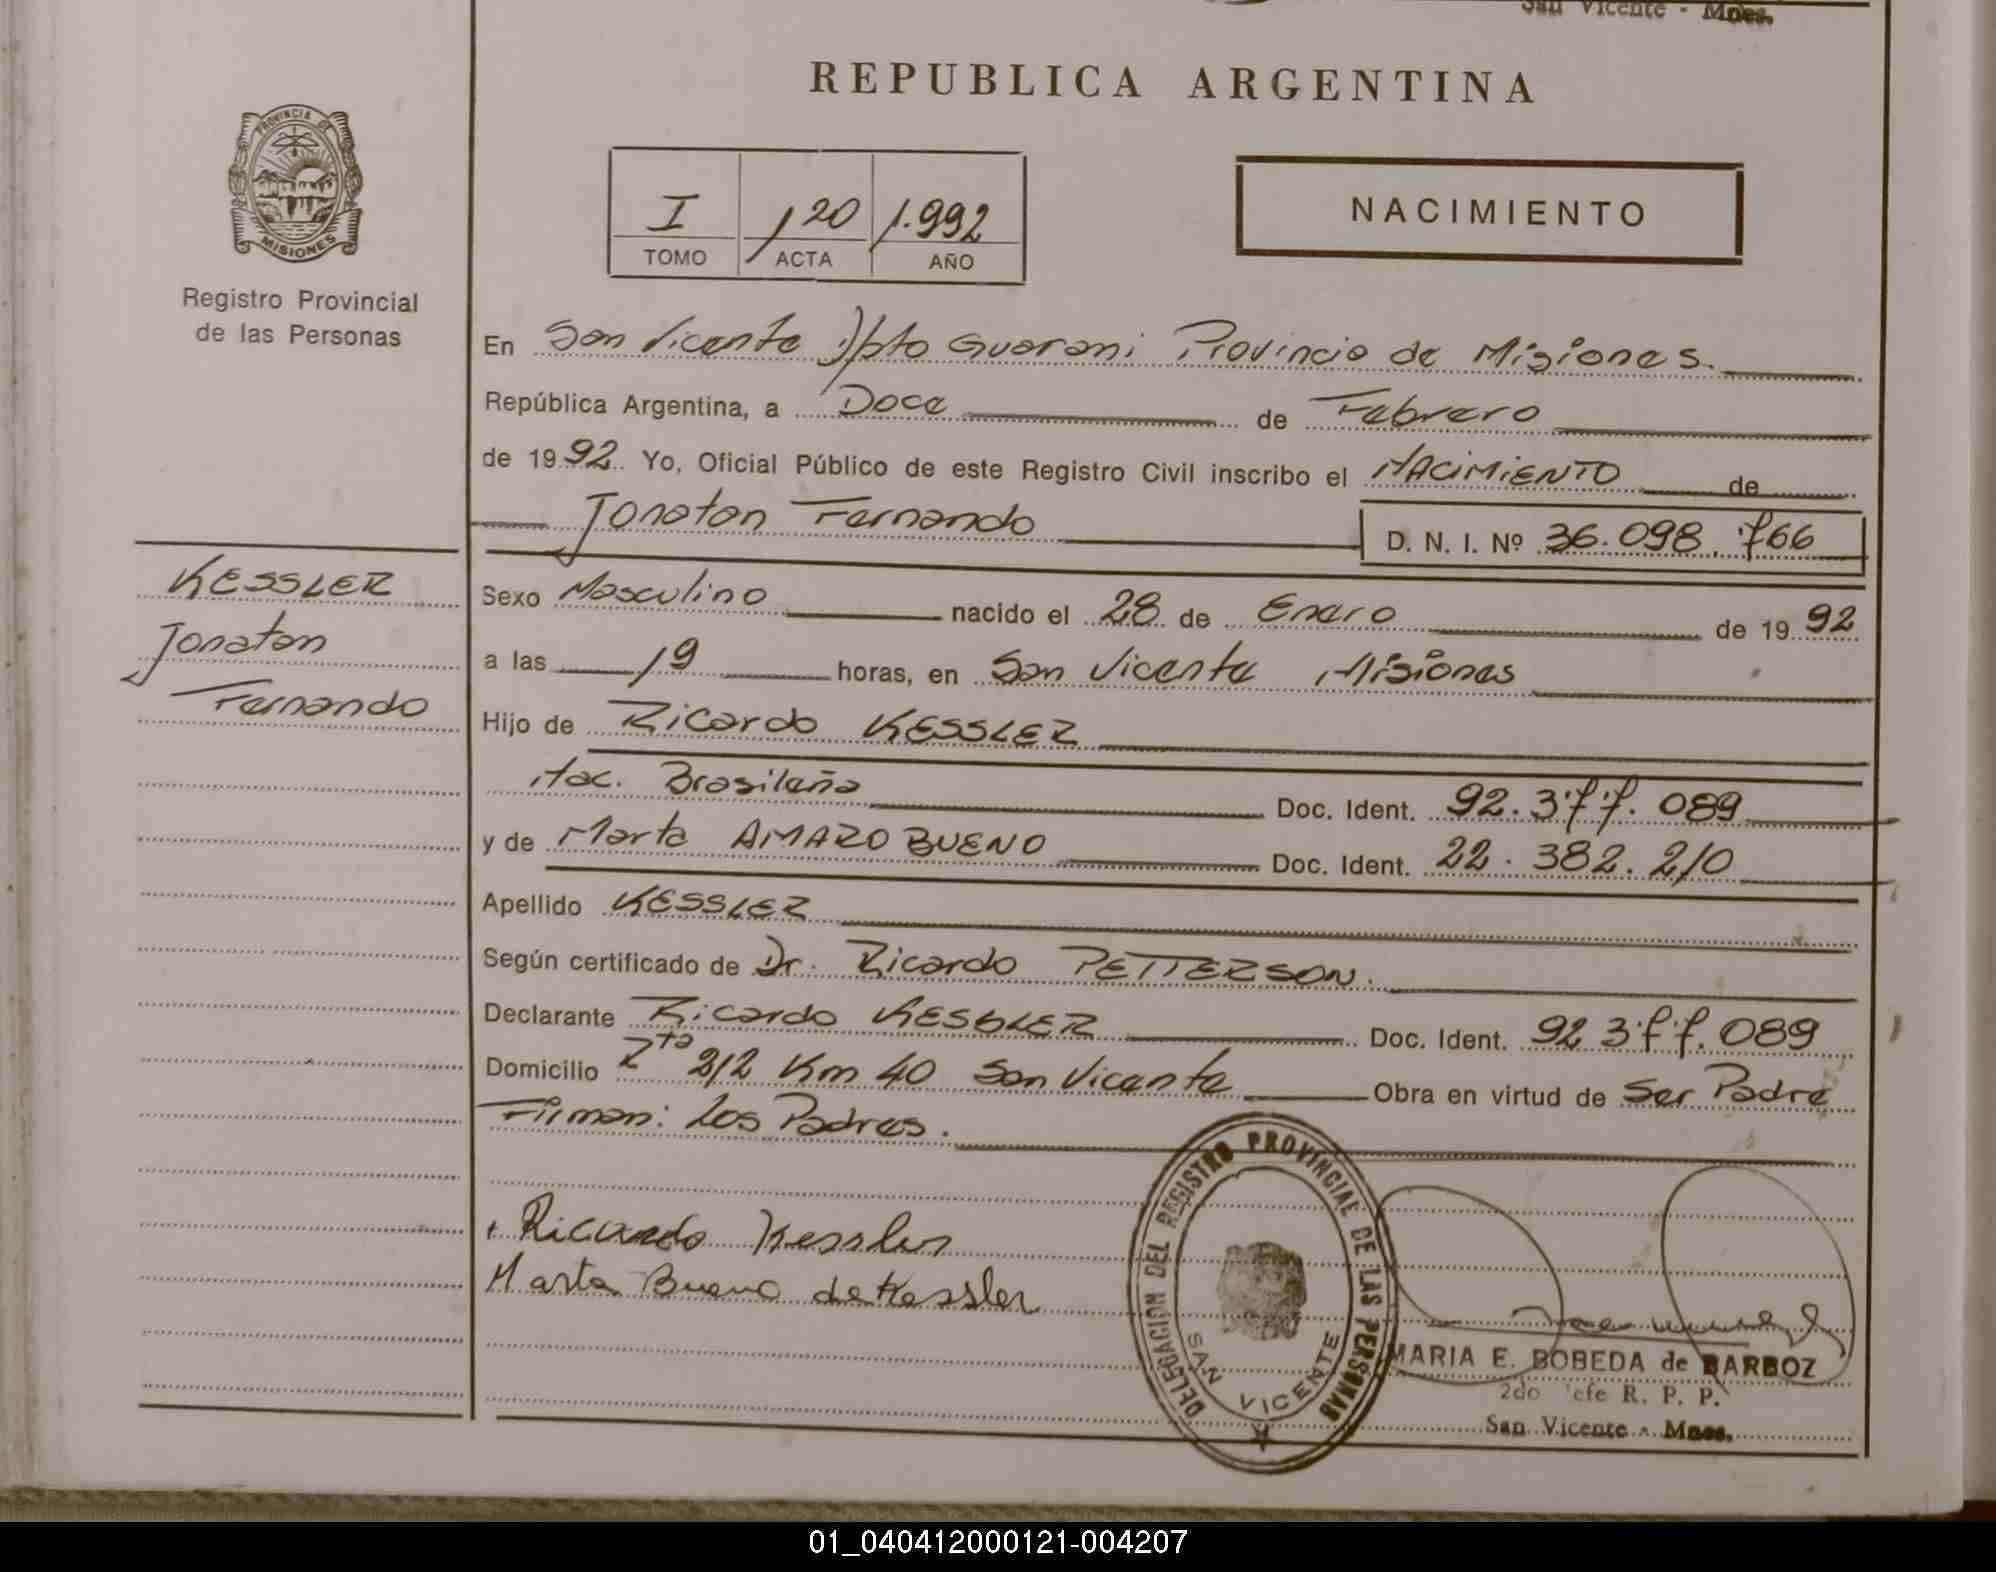 San Vicente - Mnes.
REPUBLICA ARGENTINA
PROVINCIA DE
MISIONES
Registro Provincial
de las Personas
I 120 1.992
TOMO ACTA AÑO
NACIMIENTO
En San Vicente Dpto Guarani Provincia de Misiones.
República Argentina, a Doce de Febrero
de 1992 Yo, Oficial Público de este Registro Civil inscribo el NACIMIENTO de
Jonatan Fernando D. N. I. Nº 36.098.766
KESSLER
Jonatan
Fernando
Sexo Masculino nacido el 28 de Enero de 1992
a las 19 horas, en San Vicente Misiones
Hijo de Ricardo KESSLER
Nac. Brasileña Doc. Ident. 92.377.089
y de Marta AMARO BUENO Doc. Ident. 22.382.210
Apellido KESSLER
Según certificado de Dr. Ricardo PETTERSON.
Declarante Ricardo KESSLER Doc. Ident. 92 377.089
Domicilio Rta 212 Km 40 San Vicente Obra en virtud de Ser Padre
Firman: Los Padres.
Ricardo Kessler
Marta Bueno de Kessler
DELEGACION DEL REGISTRO PROVINCIAL DE LAS PERSONAS
SAN VICENTE
MARIA E. BOBEDA de BARBOZ
2do Jefe R. P. P.
San Vicente - Mnes.
01_040412000121-004207